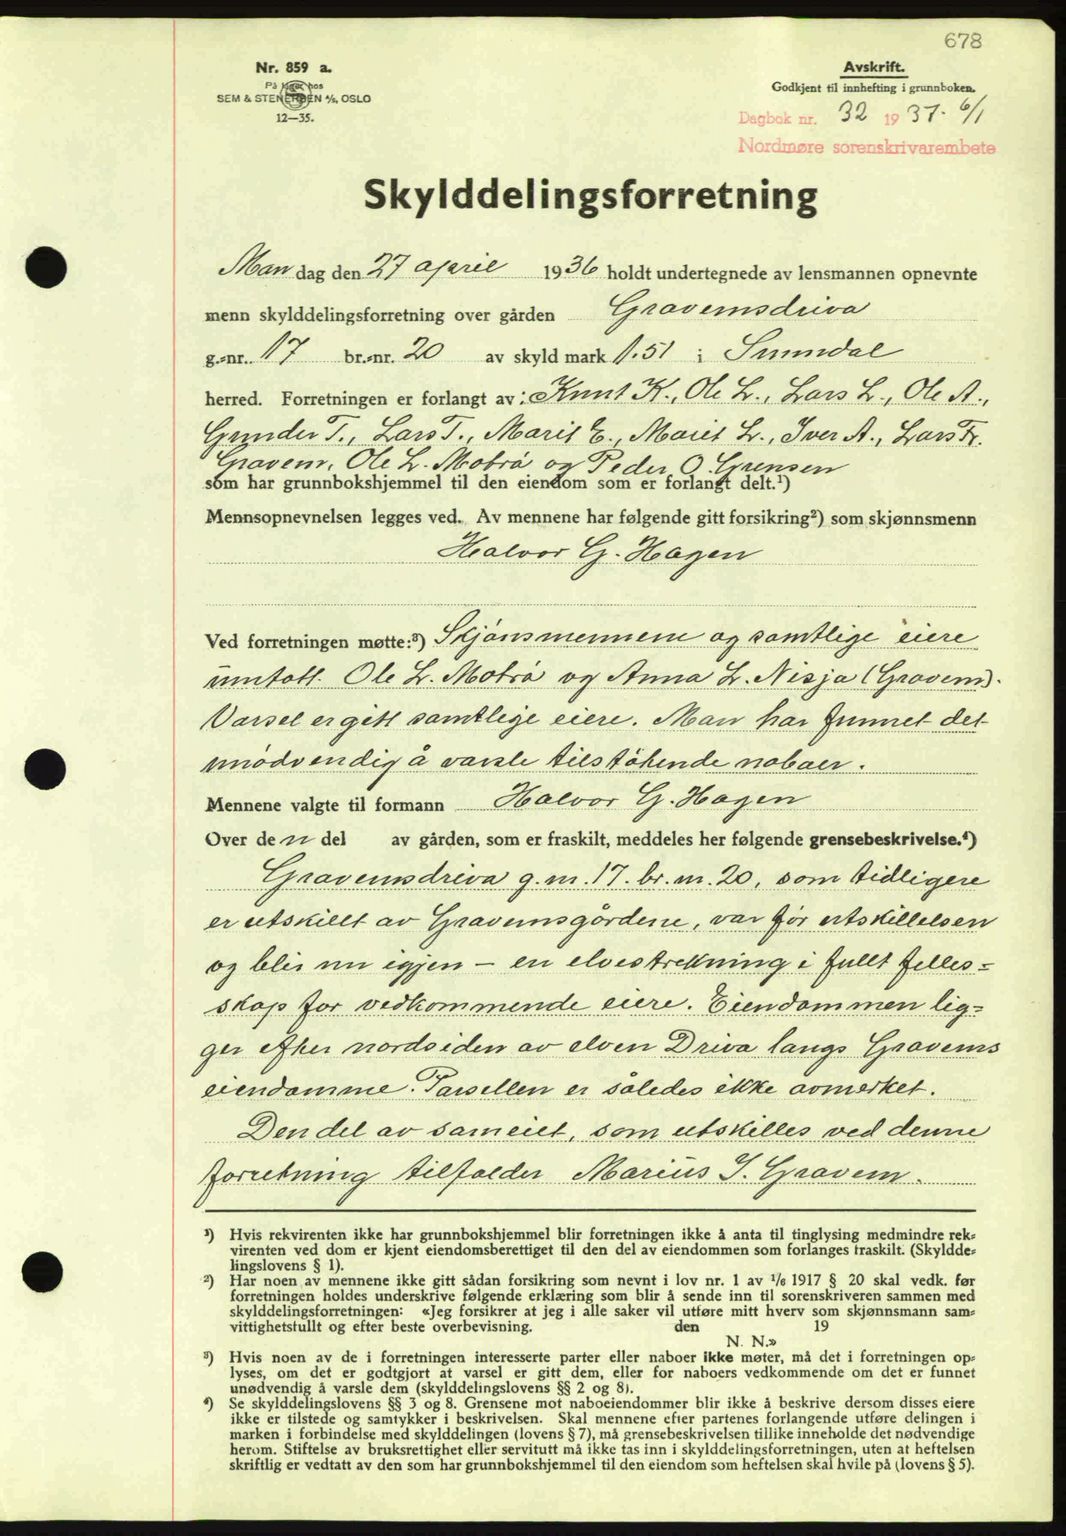 678
Nr. 859 a.
På lager hos
SEM & STENERSEN A/S, OSLO
12—35.
Avskrift.
Godkjent til innhefting i grunnboken.
Dagbok nr. 32 1937. 6/1
Nordmøre sorenskrivarembete
Skylddelingsforretning
Man dag den 27 april 1936 holdt undertegnede av lensmannen opnevnte
menn skylddelingsforretning over gården Gravemsdriva
g.-nr. 17 br.-nr. 20 av skyld mark 1.51 i Sunndal
herred. Forretningen er forlangt av: Knut K., Ole L., Lars L., Ole A.,
Gunder T., Lars T., Marit E., Marit L., Iver A., Lars Fr.
Gravem, Ole L. Mobrå og Peder O. Grensen
som har grunnbokshjemmel til den eiendom som er forlangt delt.¹)
Mennsopnevnelsen legges ved. Av mennene har følgende gitt forsikring²) som skjønnsmenn
Halvor G. Hagen
Ved forretningen møtte:³) Skjönsmennene og samtlige eiere
unntatt Ole L. Mobrå og Anna L. Nisja (Gravem).
Varsel er gitt samtlige eiere. Man har funnet det
unödvendig å varsle tilstötende naboer.
Mennene valgte til formann Halvor G. Hagen
Over de n del av gården, som er fraskilt, meddeles her følgende grensebeskrivelse.⁴)
Gravemsdriva g.nr. 17. br.nr. 20, som tidligere
er utskillt av Gravemsgårdene, var för utskillelsen
og blir nu igjen — en elvestrekning i fullt felles=
skap for vedkommende eiere. Eiendommen lig=
ger efter nordsiden av elven Driva langs Gravems
eiendomme. Parsellen er således ikke avmerket.
Den del av sameiet, som utskilles ved denne
forretning tilfalder Marius I. Gravem.
¹) Hvis rekvirenten ikke har grunnbokshjemmel blir forretningen ikke å anta til tinglysing medmindre rek=
virenten ved dom er kjent eiendomsberettiget til den del av eiendommen som forlanges fraskilt. (Skyldde=
lingslovens § 1).
²) Har noen av mennene ikke gitt sådan forsikring som nevnt i lov nr. 1 av 1/6 1917 § 20 skal vedk. før
forretningen holdes underskrive følgende erklæring som blir å sende inn til sorenskriveren sammen med
skylddelingsforretningen: «Jeg forsikrer at jeg i alle saker vil utføre mitt hverv som skjønnsmann sam=
vittighetsfullt og efter beste overbevisning. den 19
N. N.»
³) Hvis noen av de i forretningen interesserte parter eller naboer ikke møter, må det i forretningen op=
lyses, om det er godtgjort at varsel er gitt dem, eller for naboers vedkommende om det er funnet
unødvendig å varsle dem (skylddelingslovens §§ 2 og 8).
⁴) Se skylddelingslovens §§ 3 og 8. Grensene mot naboeiendommer blir ikke å beskrive dersom disses eiere
ikke er tilstede og samtykker i beskrivelsen. Skal mennene efter partenes forlangende utføre delingen i
marken i forbindelse med skylddelingen (lovens § 7), må grensebeskrivelsen tillike inneholde det nødvendige
herom. Stiftelse av bruksrettighet eller servitutt må ikke tas inn i skylddelingsforretningen, uten at heftelsen
skriftlig er vedtatt av den som har grunnbokshjemmel til den eiendom som heftelsen skal hvile på (lovens § 5).